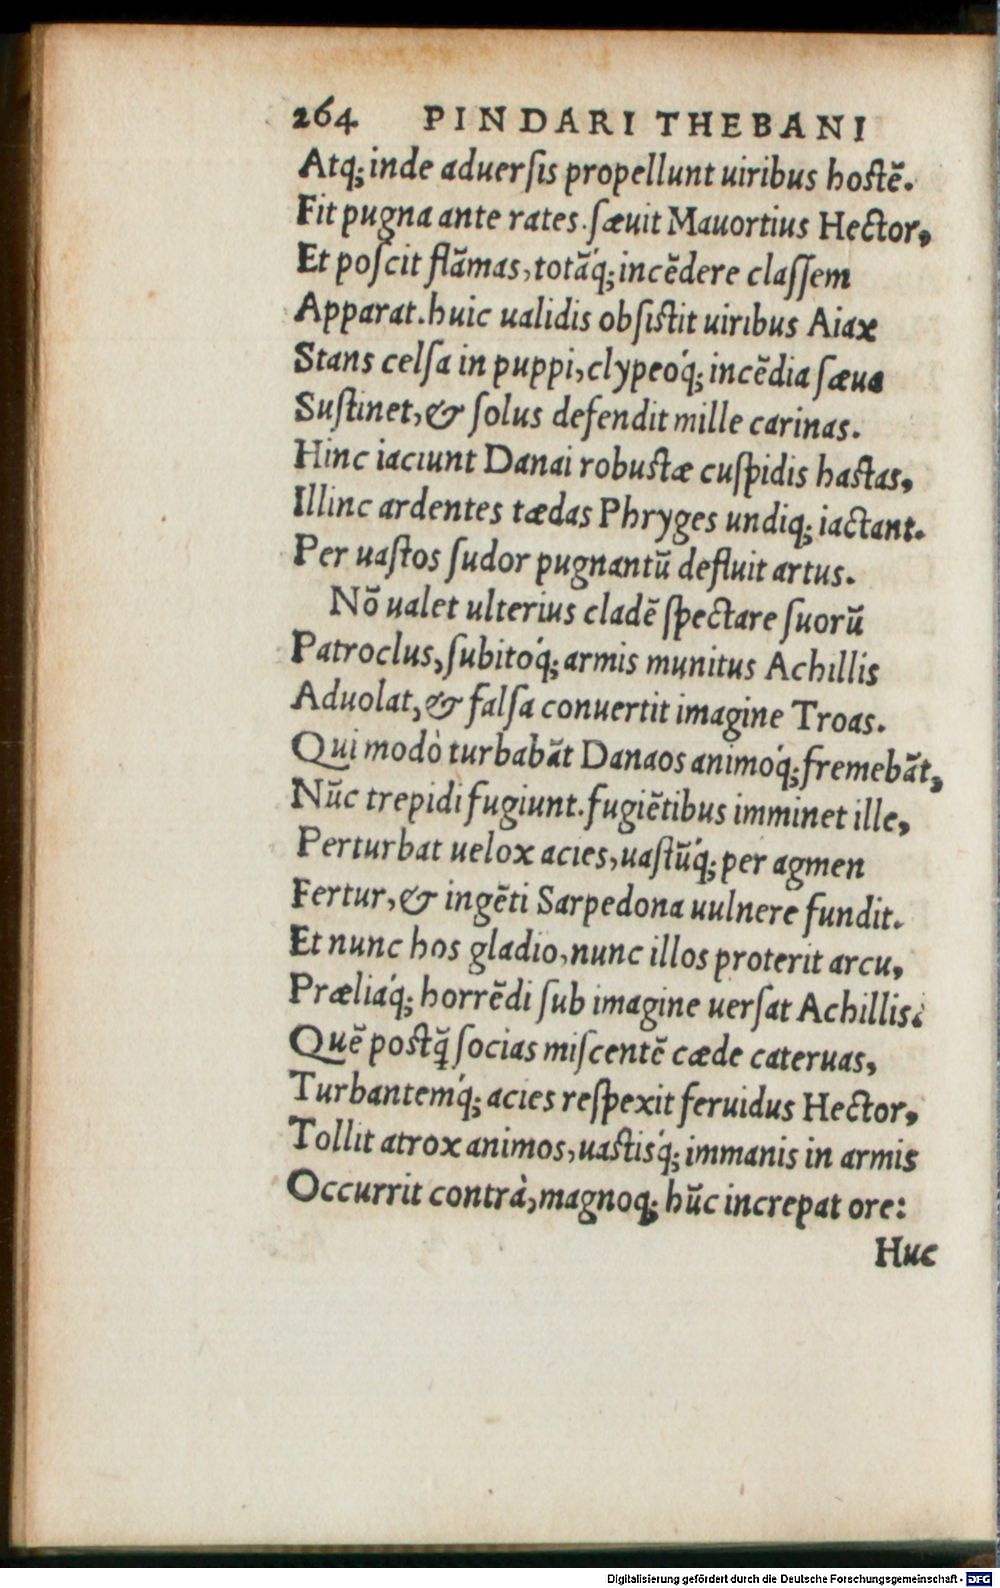 264 PINDARI THEBANI
Atq; inde aduerſis propellunt uiribus hoſtē.
Fit pugna ante rates. ſæuit Mauortius Hector,
Et poſcit flāmas, totāq́; incēdere claſſem
Apparat. huic ualidis obſiſtit uiribus Aiax
Stans celſa in puppi, clypeoq́; incēdia ſæua
Suſtinet, & ſolus defendit mille carinas.
Hinc iaciunt Danai robuſtæ cuſpidis haſtas,
Illinc ardentes tædas Phryges undiq; iactant.
Per uaſtos ſudor pugnantū defluit artus.
Nō ualet ulterius cladē ſpectare ſuorū
Patroclus, ſubitoq́; armis munitus Achillis
Aduolat, & falſa conuertit imagine Troas.
Qui modò turbabāt Danaos animoq́; fremebāt,
Nūc trepidi fugiunt. fugiētibus imminet ille,
Perturbat uelox acies, uaſtūq́; per agmen
Fertur, & ingēti Sarpedona uulnere fundit.
Et nunc hos gladio, nunc illos proterit arcu,
Præliaq́; horrēdi ſub imagine uerſat Achillis.
Quē poſtq̄ ſocias miſcentē cæde cateruas,
Turbantemq́; acies reſpexit feruidus Hector,
Tollit atrox animos, uaſtisq́; immanis in armis
Occurrit contrà, magnoq; hūc increpat ore:
Huc
Digitalisierung gefördert durch die Deutsche Forschungsgemeinschaft - DFG